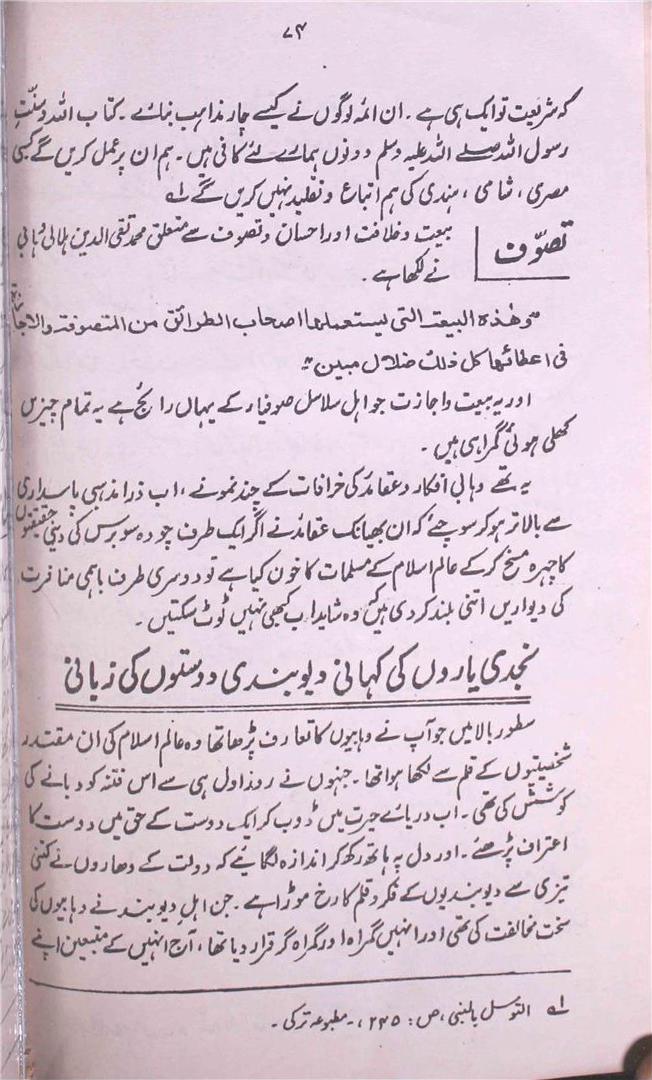 ۷۴
کہ شریعت تو ایک ہی ہے۔ ان ائمہ لوگوں نے کیسے چار مذاہب بنائے۔ کتاب اللہ و سنّتِ
رسول اللہ صلے اللہ علیہ وسلم دونوں ہمارے لئے کافی ہیں۔ ہم ان پر عمل کریں گے کسی
مصری، شامی، ہندی کی ہم اتباع و تقلید نہیں کریں گے ۱ے
تصوّف
بیعت و خلافت اور احسان و تصوف سے متعلق محمد تقی الدین ہلالی وہابی
نے لکھا ہے۔
"وھٰذہ البیعۃ التی یستعملھا اصحاب الطرائق من المتصوفۃ والاجازۃ
فی اعطائھا کل ذلک ضلال مبین"
اور یہ بیعت و اجازت جو اہل سلاسل صوفیاء کے یہاں رائج ہے یہ تمام چیزیں
کھلی ہوئی گمراہی ہیں۔
یہ تھے وہابی افکار و عقائد کی خرافات کے چند نمونے، اب ذرا مذہبی پاسداری
سے بالا تر ہو کر سوچئے کہ ان بھیانک عقائد نے اگر ایک طرف چودہ سو برس کی دینی حقیقتوں
کا چہرہ مسخ کر کے عالم اسلام کے مسلمات کا خون کیا ہے تو دوسری طرف باہمی منافرت
کی دیواریں اتنی بلند کر دی ہیں کہ وہ شاید اب کبھی نہیں ٹوٹ سکتیں۔
نجدی یاروں کی کہانی دیوبندی دوستوں کی زبانی
سطور بالا میں جو آپ نے وہابیوں کا تعارف پڑھا تھا وہ عالم اسلام کی ان مقتدر
شخصیتوں کے قلم سے لکھا ہوا تھا۔ جنہوں نے روز اول ہی سے اس فتنہ کو دبانے کی
کوشش کی تھی۔ اب دریائے حیرت میں ڈوب کر ایک دوست کے حق میں دوست کا
اعتراف پڑھئے۔ اور دل پہ ہاتھ رکھ کر اندازہ لگائیے کہ دولت کے دھاروں نے کتنی
تیزی سے دیوبندیوں کے فکر و قلم کا رخ موڑا ہے۔ جن اہل دیوبند نے وہابیوں کی
سخت مخالفت کی تھی اور انہیں گمراہ اور گمراہ گر قرار دیا تھا، آج انہیں کے متبعین اپنے
۱ے التوسل بالنبی، ص: ۲۴۵،۔ مطبوعہ ترکی۔